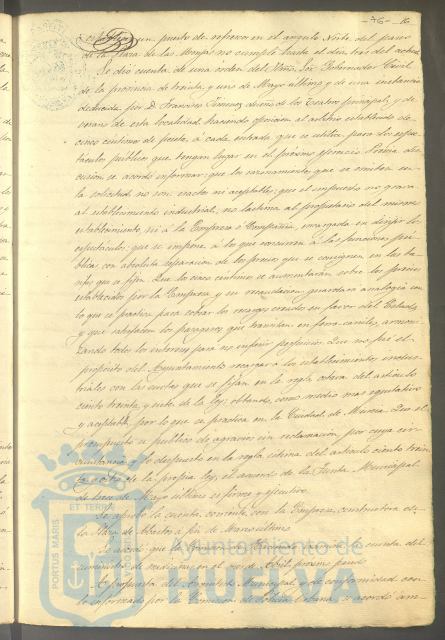 -76- 16
un puesto de refresco en el ángulo Norte del paseo
de la Plaza de las Monjas no cumple hasta el dia tres del actual
Se dió cuenta de una orden del Ilmo. Sor. Gobernador Civil
de la provincia de treinta y uno de Mayo último y de una instancia
deducida por D. Francisco dueño de los teatros principal, y de
verano de esta localidad haciendo oposicion al arbitrio establecido de
cinco centimos de peseta á cada entrada que se utilice para los espec-
táculos públicos que tengan lugar en el próximo ejercicio. Prévia dis-
cusion se acordó informar: que los razonamientos que se emiten en
la solicitud no son exactos ni aceptables; que el impuesto no grava
al establecimiento industrial; no lastima al propietario del mismo
establecimiento, ni á la Empresa ó Compañía, encargada en dirigir los
espectáculos; que se impone á los que concurran á las funciones pú-
blicas con absoluta separacion de los precios que se consignen en las ta-
rifas que se fijan. Que los cinco centimos se aumentarán sobre los precios
establecidos por la Empresa y su recaudacion guardará analogía con
lo que se practica para cobrar los recargos creados en favor del Estado,
y que satisfacen los pasageros que transitan en ferro-carriles, armoni-
zando todos los intereses para no inferir perjuicios. Que no fué el
propósito del Ayuntamiento recargar á los establecimientos indus-
triales con las cuotas que se fijan en la regla octava del artículo
ciento treinta y siete de la ley; optando, como medio mas equitativo
y aceptable, por lo que se practica en la Ciudad de Murcia. Que el
presupuesto se publicó de agravios sin reclamacion por cuya cir-
cunstancia y lo dispuesto en la regla del artículo ciento trein-
ta y siete de la propia ley, el acuerdo de la Junta Municipal
de trece de Mayo último es firme y ejecutivo
Se aprobó la cuenta corriente con la Empresa constructora de
la Plaza de Abastos, á fin de Marzo último
Se acordó que la Comision de Hacienda la cuenta del
suministro de medicinas en el mes de Abril próximo pasado
A propuesta del Arquitecto Municipal y de conformidad con
lo informado por la Comision de Policía Urbana, se acordó am-
PORTUS MARIS ET TERRAE
Ayuntamiento de